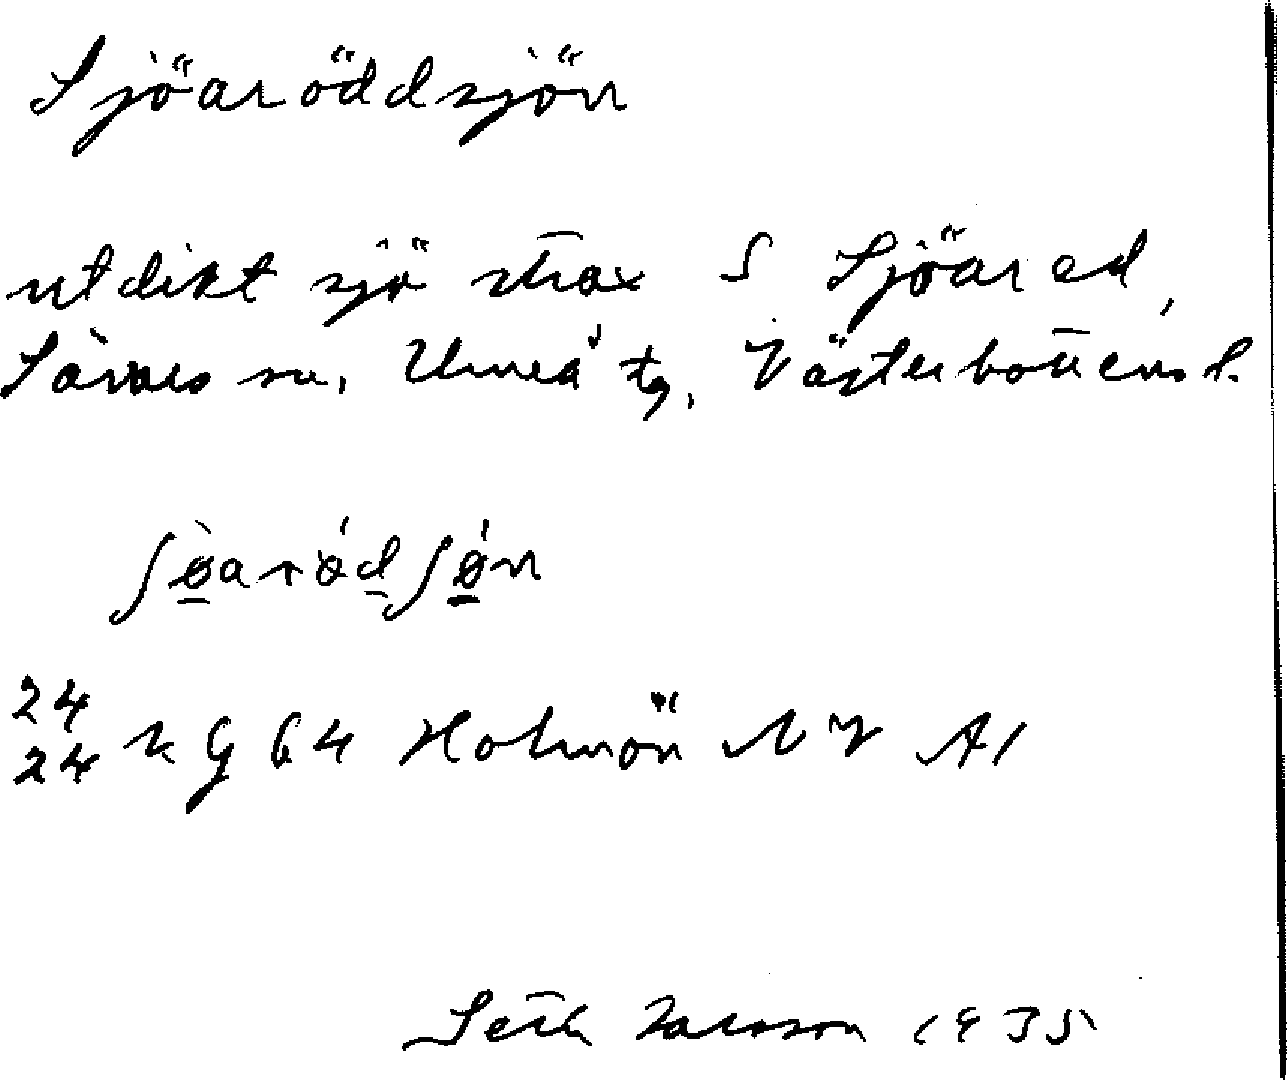 Sjöaröddsjön
utdikt sjö strax S Sjöared,
Sävars sn, Umeå tg, Västerbottens l.
ʃøarödʃøn
24
24 n G 64 Holmön NV A1
Seth Larsson 1935